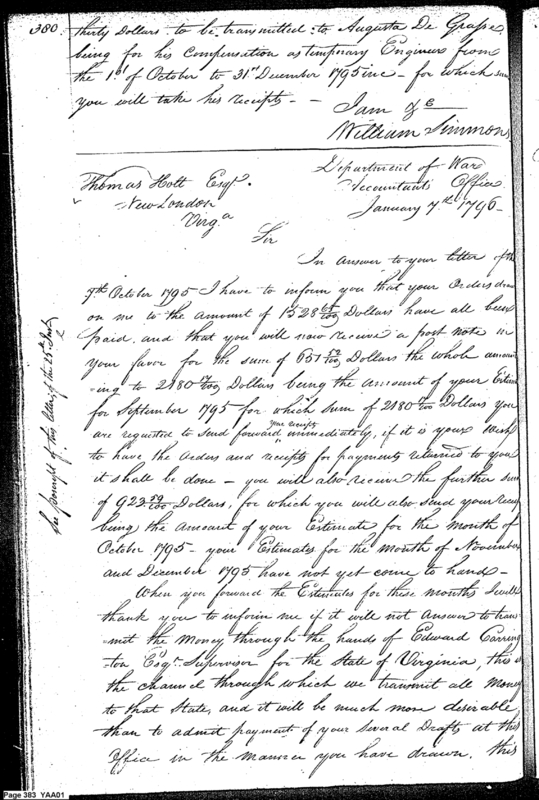 380.
thirty Dollars to be transmitted to Augusta De Grasse
being for his Compensation as temporary Engineer from
the 1st of October to 31st December 1795 inc - for which sum
you will take his receipts - -
I am &c
William Simmons
Department of War
Accountants Office
January 7th 1796 -
Thomas Holt Esqr.
New London
Virga
Sir
In answer to your letter of the
9th October 1795 I have to inform you that your Orders drawn
on me to the amount of 1528 64/100 Dollars have all been
paid, and that you will now receive a post note in
your favor for the sum of 651 52/100 Dollars the whole amount
-ing to 2180 16/100 Dollars being the amount of your Estimate
for September 1795 for which sum of 2180 16/100 Dollars you
are requested to send forward your receipts immediately, if it is your wish
to have the Orders and receipts for payments returned to you
it shall be done - you will also receive the further sum
of 923 59/100 Dollars, for which you will also send your receipt
being the amount of your Estimate for the Month of
October 1795 - your Estimates for the Month of November
and December 1795 have not yet come to hand -
When you forward the Estimates for these months I will
thank you to inform me if it will not answer to trans
-mit the Money through the hands of Edward Carring
-ton Esqr. Supervisor for the State of Virginia, this is
the channel through which we transmit all Money
to that State, and it will be much more desirable
than to admit payment of your several Drafts at this
Office in the Manner you have drawn. this
of this letter of the 25th Inst
Page 383 YAA01